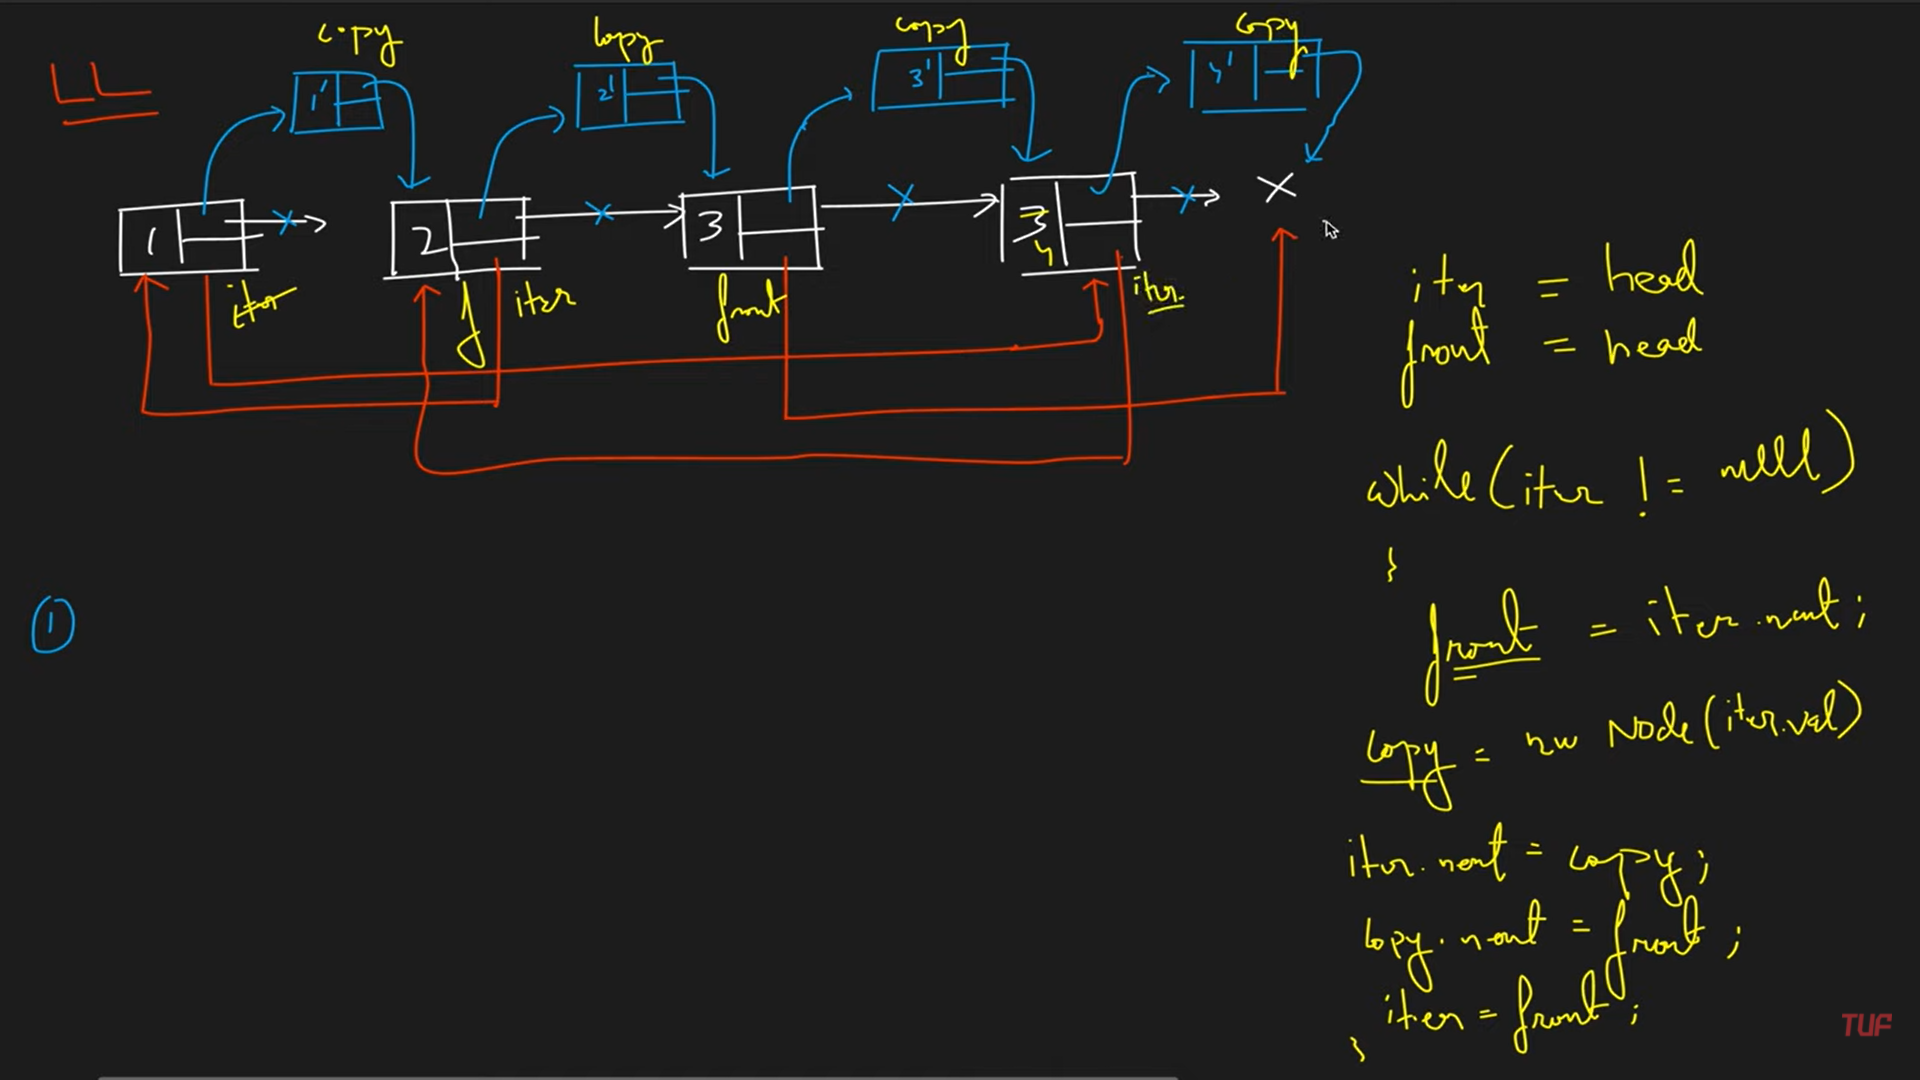 LL
copy
copy
copy
copy
1'
2'
3'
4'
1
2
3
3
4
iter
f
iter
front
iter
iter = head
front = head
while(iter != null)
{
front = iter.next;
copy = new Node(iter.val)
iter.next = copy;
copy.next = front;
iter = front;
}
1
TUF